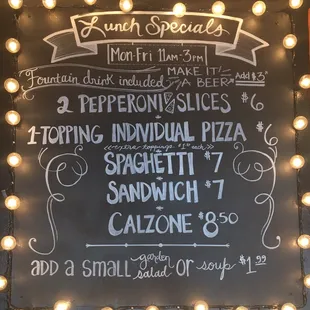 Lunch Specials
Mon-Fri 11AM-3PM
Fountain drink included MAKE IT A BEER Add $3
2 PEPPERONI SLICES $6
1-TOPPING INDIVIDUAL PIZZA $6
extra toppings $1 each
SPAGHETTI $7
SANDWICH $7
CALZONE $8.50
ADD A SMALL garden salad OR soup $1.99